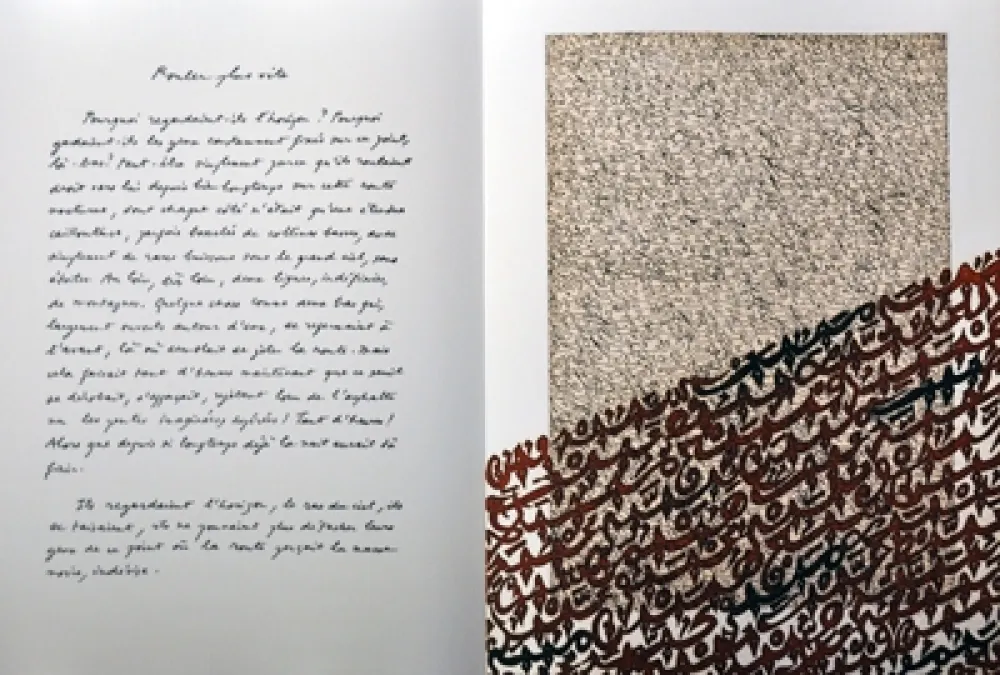 Rouler plus vite
Pourquoi regardaient-ils l'horizon ? Pourquoi
gardaient-ils les yeux continûment fixés sur ce point,
là-bas ? Peut-être simplement parce qu'ils roulaient
droit vers lui depuis bien longtemps sur cette route
nocturne, dont chaque côté n'était qu'une étendue
caillouteuse, parfois bosselée de collines basses, avec
simplement de rares buissons sous le grand ciel, sans
étoiles. Au loin, très loin, deux lignes, indéfinies,
de montagnes. Quelque chose comme deux bras qui,
largement ouverts autour d'eux, se rejoignaient à
l'avant, là où semblait se jeter la route. Mais
cela faisait tant d'heures maintenant que ce
se dérobait, s'effaçait, rejetant loin de l'asphalte
ou les gestes imaginés espérés ! Tant d'heures !
Alors que depuis si longtemps déjà la nuit aurait dû
finir.
Ils regardaient l'horizon, le ras du ciel, ils
se taisaient, ils ne pouvaient plus détacher leurs
yeux de ce point où la route perçait la masse
noire, indécise.